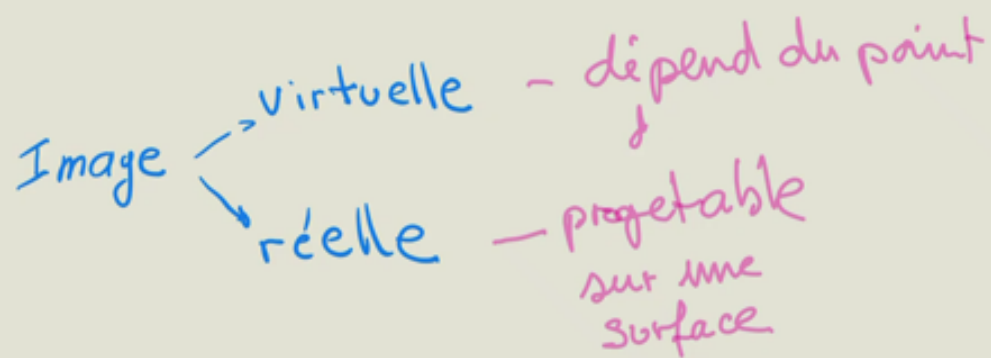 Image
virtuelle - dépend du point
réelle - progetable
sur une
surface